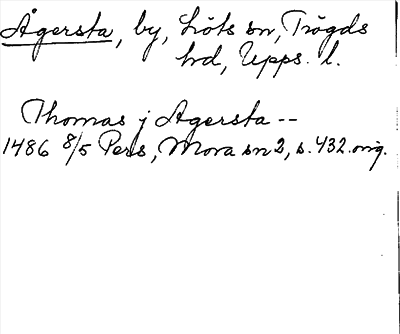 Ågersta, by, Löts sn, Trögds
hd, Upps. l.
Thomas j Agersta --
1486 8/5 Pers, Mora sn 2, s. 432. orig.